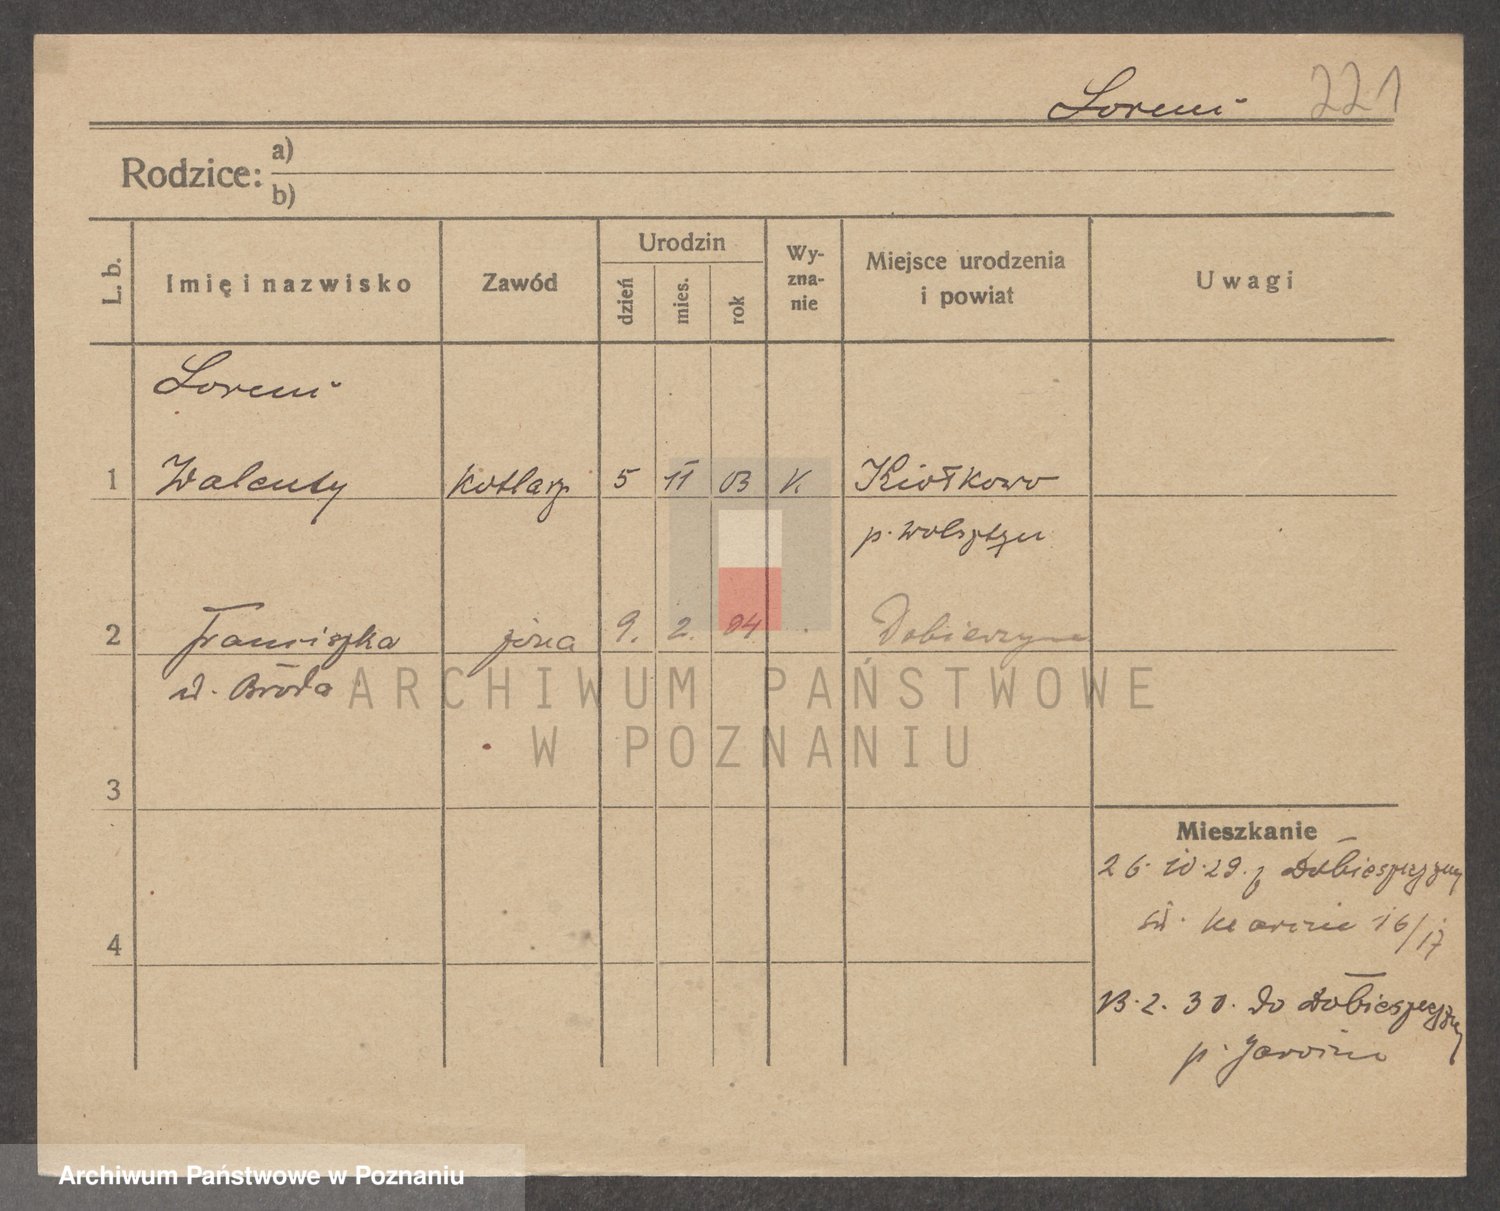 Loreni 221
Rodzice: a)
b)
L. b. Imię i nazwisko Zawód Urodzin dzień mies. rok Wy-zna-nie Miejsce urodzenia i powiat Uwagi
Loreni
1 Walenty kotlarz 5 11 03 K.
p. Wolsztyn
2 Franciszka żona 9. 2. 04
d. Broda
ARCHIWUM PAŃSTWOWE
W POZNANIU
3
4
Mieszkanie
26. 10. 29. z
św. Marcin 16/17
13. 2. 30. do
p.
Archiwum Państwowe w Poznaniu